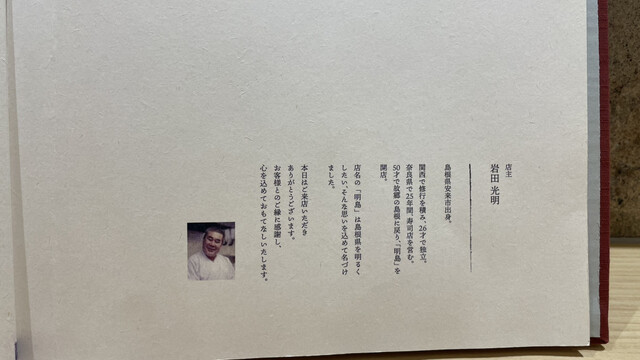 店主
岩田 光明
島根県安来市出身。
関西で修行を積み、26才で独立。
奈良県で25年間、寿司店を営む。
50才で故郷の島根に戻り、「明島」を
開店。
店名の「明島」は島根県を明るく
したい、そんな思いを込めて名づけ
ました。
本日はご来店いただき
ありがとうございます。
お客様とのご縁に感謝し、
心を込めておもてなしいたします。